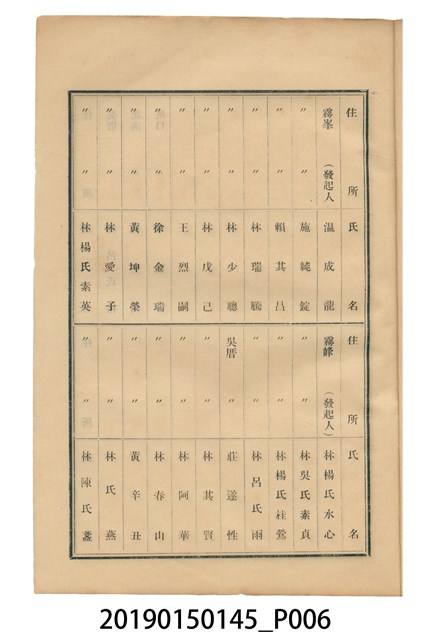 住所 氏名
霧峯 （發起人 温成龍
〃 〃 施純錠
〃 〃 賴其昌
〃 〃 林瑞騰
〃 〃 林少聰
〃 〃 林戊己
〃 〃 王烈嗣
〃 〃 徐金瑞
〃 〃 黃坤榮
〃 〃 林愛子
〃 〃 林楊氏素英
住所 氏名
霧峰 （發起人） 林楊氏水心
〃 〃 林吳氏素貞
〃 〃 林楊氏桂鶯
〃 〃 林呂氏雨
吳厝 〃 莊遂性
〃 〃 林其賢
〃 〃 林阿華
〃 〃 林春山
〃 〃 黃辛丑
〃 〃 林氏燕
〃 〃 林陳氏
20190150145_P006